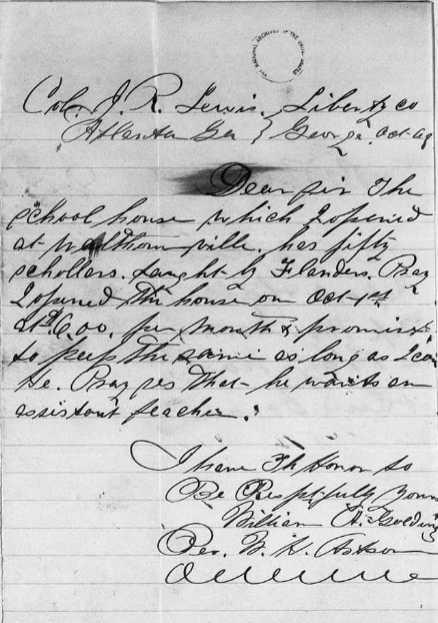 Col. J. R. Lewis. Liberty co
Atlanta Ga } Georgia. Oct 69
Dear sir The
school house which I opened
at Walthourville. has fifty
schollars. taught by Flanders.
I opened the house on Oct 1st
at $6.00. per month & promise
to keep the same as long as I can
he wants an
assistant teacher.
I have Th Honor to
Be Respctifully your
William A. Golding
Per. W. H.